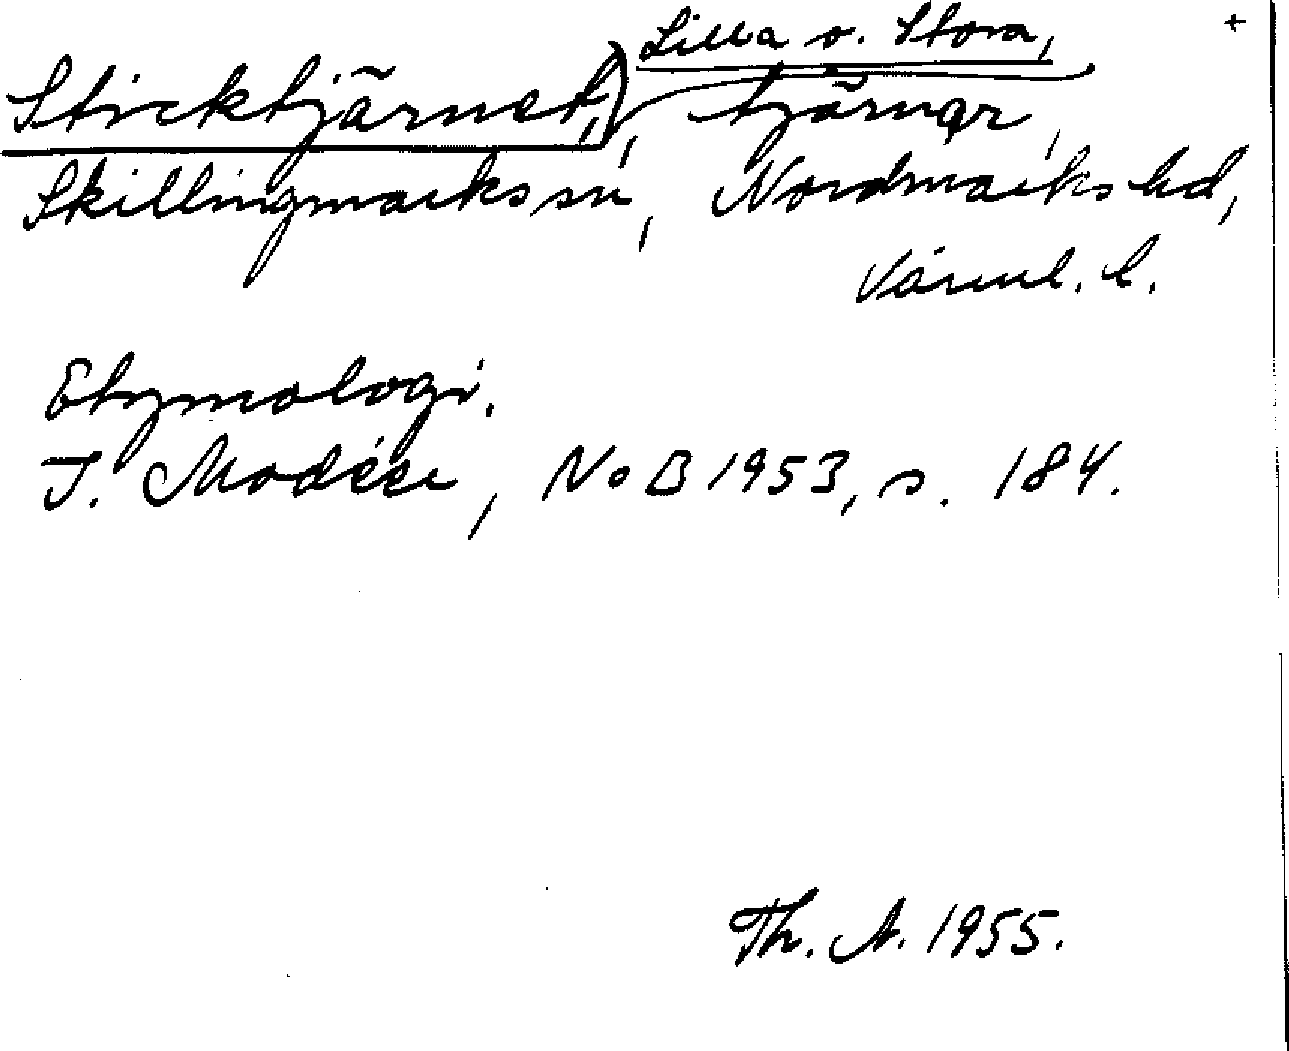 Sticktjärnet, Lilla o. Stora, tjärnar, +
Skillingmarks sn, Nordmarks hd,
Värml. l.
Etymologi.
I. Modéer, NoB 1953, s. 184.
Th. A. 1955.